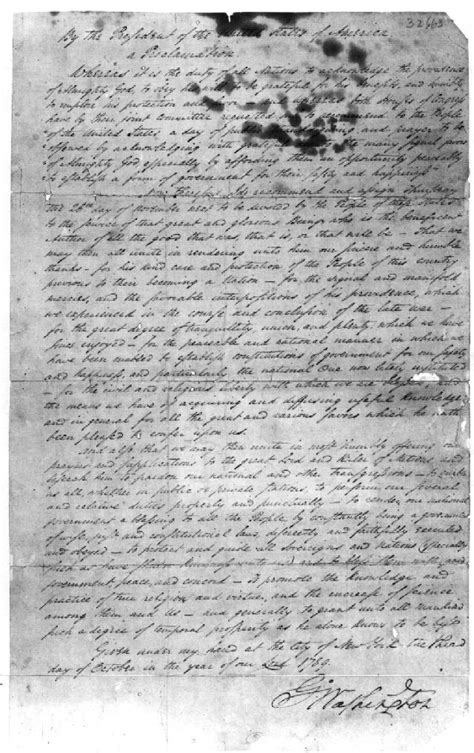 32663
By the President of the United States of America
a Proclamation
Whereas it is the duty of all Nations to acknowledge the providence
of Almighty God, to obey his will, to be grateful for his benefits, and humbly
to implore his protection and favor and whereas both Houses of Congress
have by their joint committee requested me to recommend to the People
of the United States a day of public and prayer to be
observed by acknowledging with grateful the many signal favors
of Almighty God especially by affording them an opportunity peaceably
to establish a form of government for their safety and happiness.
Now therefore I do recommend and assign Thursday
the 26th day of November next to be devoted by the People of these States
to the service of that great and glorious Being who is the beneficent
Author of all the good that was, that is, or that will be – That we
may then all unite in rendering unto him our sincere and humble
thanks – for his kind care and protection of the People of this country
previous to their becoming a Nation – for the signal and manifold
mercies, and the favorable interpositions of his providence, which
we experienced in the course and conclusion of the late war –
for the great degree of tranquillity, union, and plenty, which we have
since enjoyed – for the peaceable and rational manner in which we
have been enabled to establish constitutions of government for our safety
and happiness, and particularly the national One now lately instituted
– for the civil and religious liberty with which we are blessed, and
the means we have of acquiring and diffusing useful knowledge
and in general for all the great and various favors which he hath
been pleased to confer upon us.
And also that we may then unite in most humbly offering our
prayers and supplications to the great Lord and Ruler of Nations, and
beseech him to pardon our national and other transgressions – to enable
us all, whether in public or private stations, to perform our several
and relative duties properly and punctually – to render our national
government a blessing to all the People, by constantly being a government
of wise, just and constitutional laws, discreetly and faithfully executed
and obeyed – to protect and guide all Sovereigns and Nations (especially
such as have shown kindness unto us) and to bless them with good
government, peace, and concord – To promote the knowledge and
practice of true religion and virtue, and the encrease of science
among them and Us – and generally to grant unto all Mankind
such a degree of temporal prosperity as he alone knows to be best.
Given under my hand at the City of New York the third
day of October in the year of our Lord 1789.
Go Washington